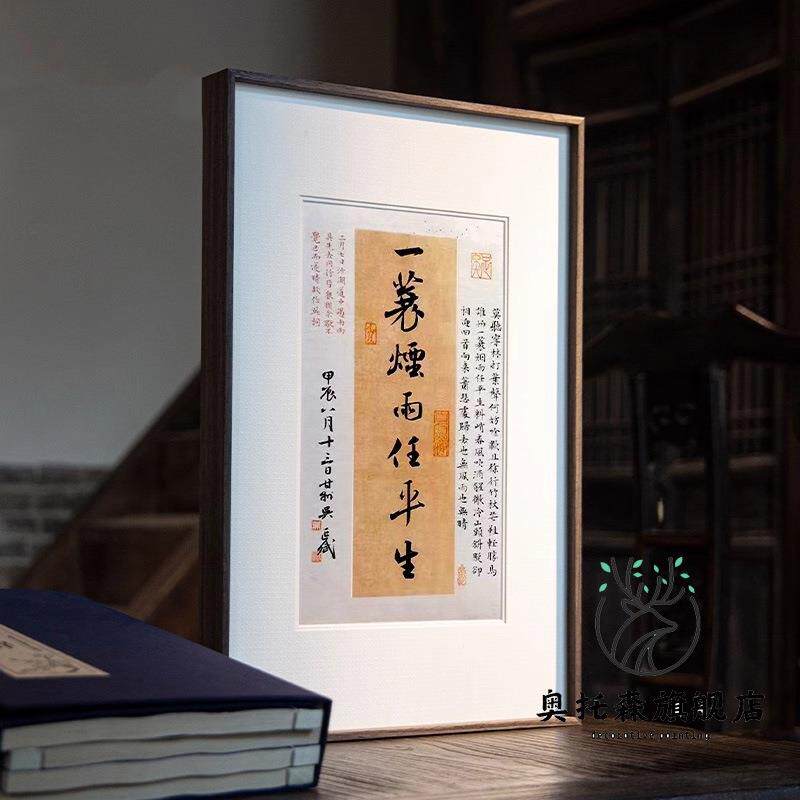 莫聽穿林打葉聲何妨吟嘯且徐行竹杖芒鞋輕勝馬
誰怕一蓑烟雨任平生料峭春風吹酒醒微冷山頭斜照卻
相迎回首向來蕭瑟處歸去也無風雨也無晴
一蓑煙雨任平生
三月七日沙湖道中遇雨雨
具先去同行皆狼狽余獨不
覺已而遂晴故作此詞
甲辰八月十三日
奥托森旗舰店